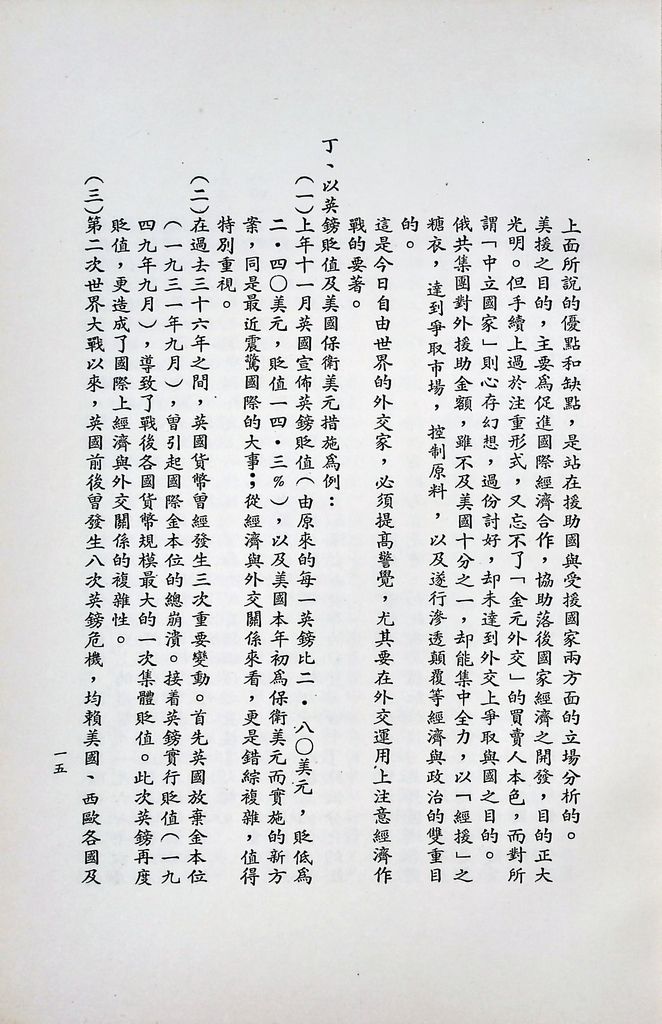 上面所說的優點和缺點，是站在援助國與受援國家兩方面的立場分析的。
美援之目的，主要為促進國際經濟合作，協助落後國家經濟之開發，目的正大
光明。但手續上過於注重形式，又忘不了「金元外交」的買賣人本色，而對所
謂「中立國家」則心存幻想，過份討好，却未達到外交上爭取與國之目的。
俄共集團對外援助金額，雖不及美國十分之一，却能集中全力，以「經援」之
糖衣，達到爭取市場，控制原料，以及遂行滲透顛覆等經濟與政治的雙重目
的。
這是今日自由世界的外交家，必須提高警覺，尤其要在外交運用上注意經濟作
戰的要著。
丁、以英鎊貶值及美國保衛美元措施為例：
（一）上年十一月英國宣佈英鎊貶值（由原來的每一英鎊比二・八〇美元，貶低為
二・四〇美元，貶值一四・三％），以及美國本年初為保衛美元而實施的新方
案，同是最近震驚國際的大事；從經濟與外交關係來看，更是錯綜複雜，值得
特別重視。
（二）在過去三十六年之間，英國貨幣曾經發生三次重要變動。首先英國放棄金本位
（一九三一年九月），曾引起國際金本位的總崩潰。接着英鎊實行貶值（一九
四九年九月），導致了戰後各國貨幣規模最大的一次集體貶值。此次英鎊再度
貶值，更造成了國際上經濟與外交關係的複雜性。
（三）第二次世界大戰以來，英國前後曾發生八次英鎊危機，均賴美國、西歐各國及
一五